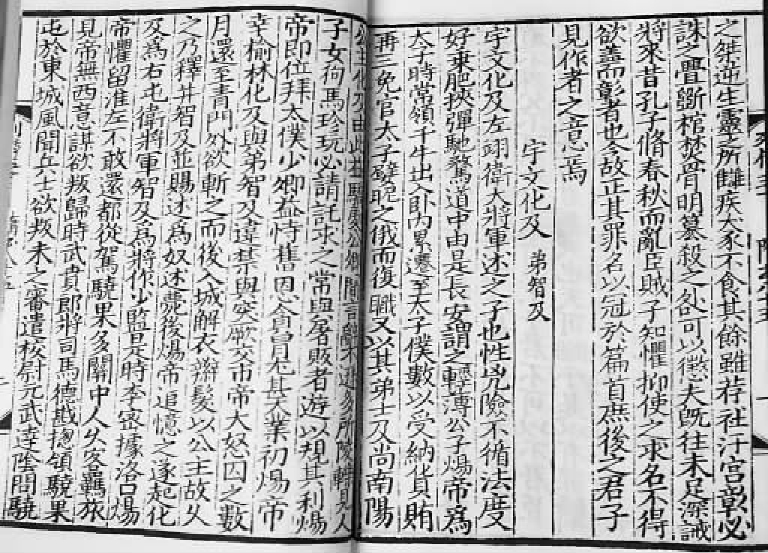 之桀逆生靈之所讎疾犬豕不食其餘雖荐社汙宮彰必
誅之釁斲棺焚骨明篡殺之咎可以懲夫既往未足深誡
將來昔孔子脩春秋而亂臣賊子知懼抑使之求名不得
欲蓋而彰者也今故正其罪名以冠於篇首庶後之君子
見作者之意焉
宇文化及 弟智及
宇文化及左翊衛大將軍述之子也性兇險不循法度
好乘肥挾彈馳騖道中由是長安謂之輕薄公子煬帝爲
太子時常領千牛出入卧內累遷至太子僕數以受納貨賄
再三免官太子嬖昵之俄而復職又以其弟士及尚南陽
公主化及由此益驕處公卿間言辭不遜多所陵轢見人
子女狗馬珍玩必請託求之常與屠販者遊以規其利煬
帝即位拜太僕少卿益恃舊恩貪冒尤甚大業初煬帝
幸榆林化及與弟智及違禁與突厥交市帝大怒囚之數
月還至青門外欲斬之而後入城解衣辮髮以公主故久
之乃釋并智及並賜述爲奴述薨後煬帝追憶之遂起化
及爲右屯衛將軍智及爲將作少監是時李密據洛口煬
帝懼留淮左不敢還都從駕驍果多關中人久客羈旅
見帝無西意謀欲叛歸時武賁郎將司馬德戡揔領驍果
屯於東城風聞兵士欲叛未之審遣校尉元武達陰問驍